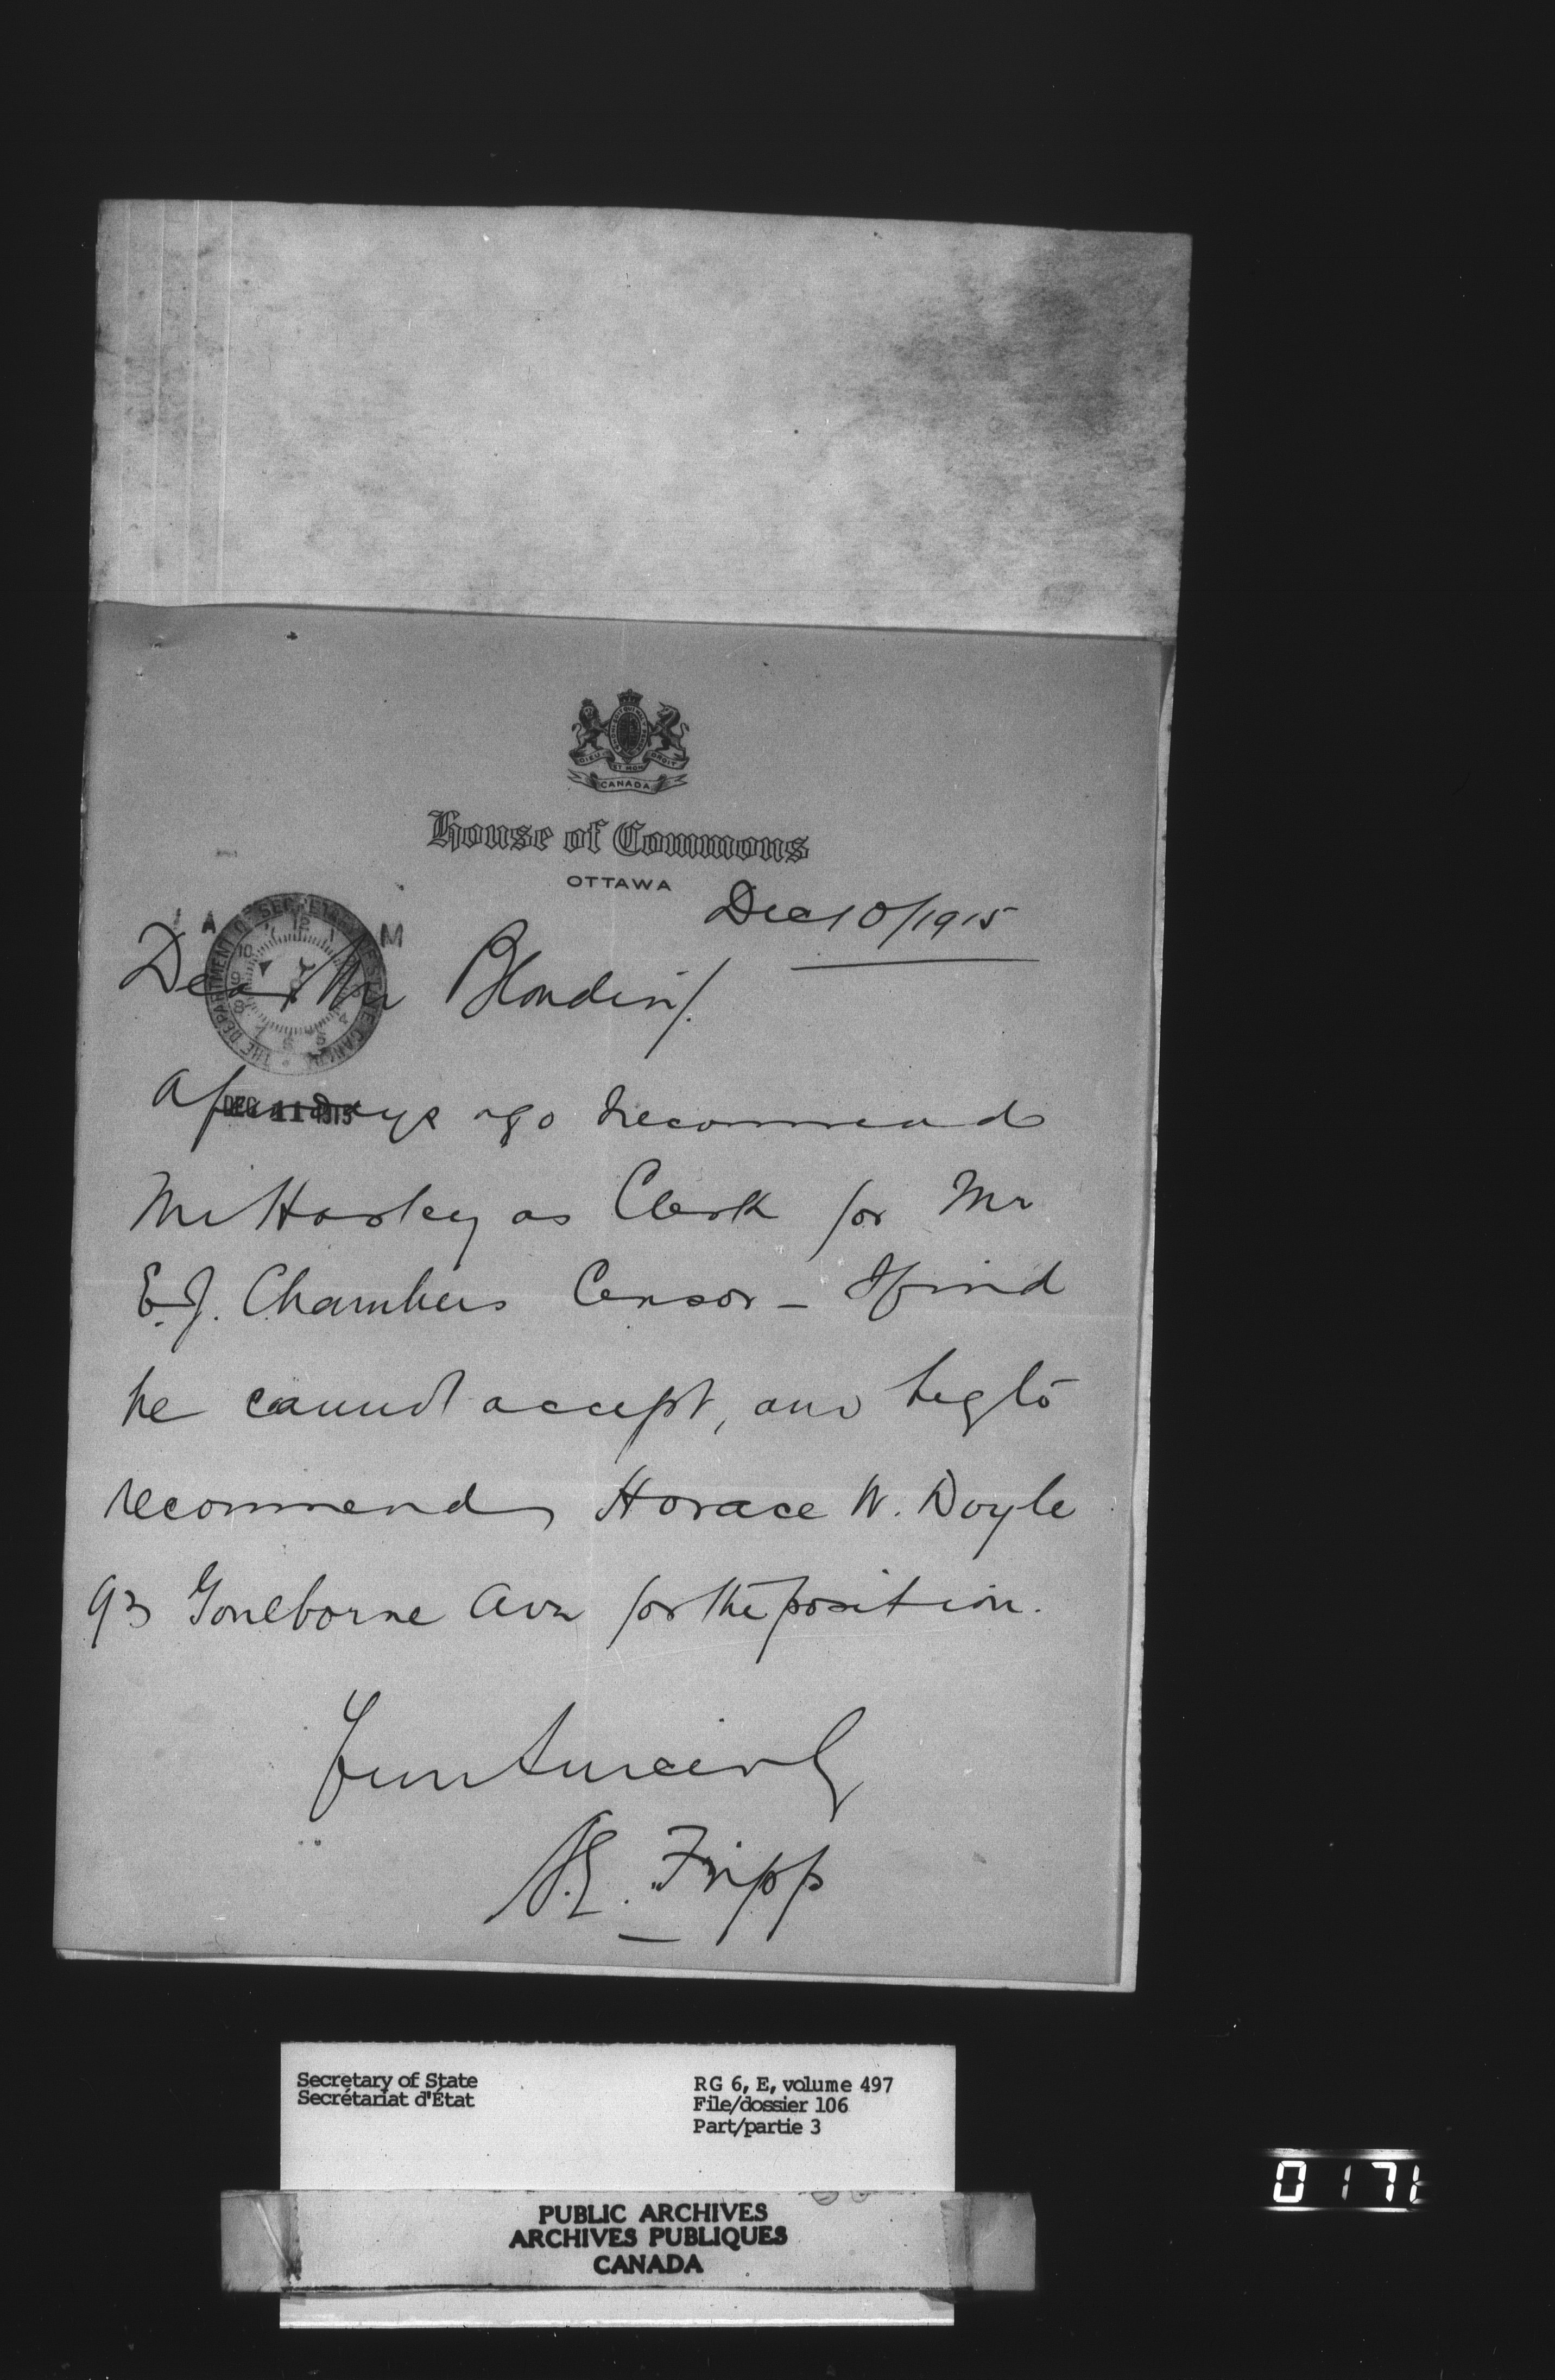 DIEU ET MON DROIT
CANADA
House of Commons
OTTAWA
Dec 10/1915
THE DEPARTMENT OF SECRETARY OF STATE CANADA
A M
DEC 11 1915
Dear Mr Blondin/.
A few days ago recommend
Mr Harley as Clerk for Mr
E.J. Chambers Censor - I find
he cannot accept, and beg to
recommend Horace W. Doyle
93 Goulborne Ave for the position.
Yours Sincerely
A.E. Fripp
Secretary of State
Secrétariat d'État
RG 6, E, volume 497
File/dossier 106
Part/partie 3
PUBLIC ARCHIVES
ARCHIVES PUBLIQUES
CANADA
0171